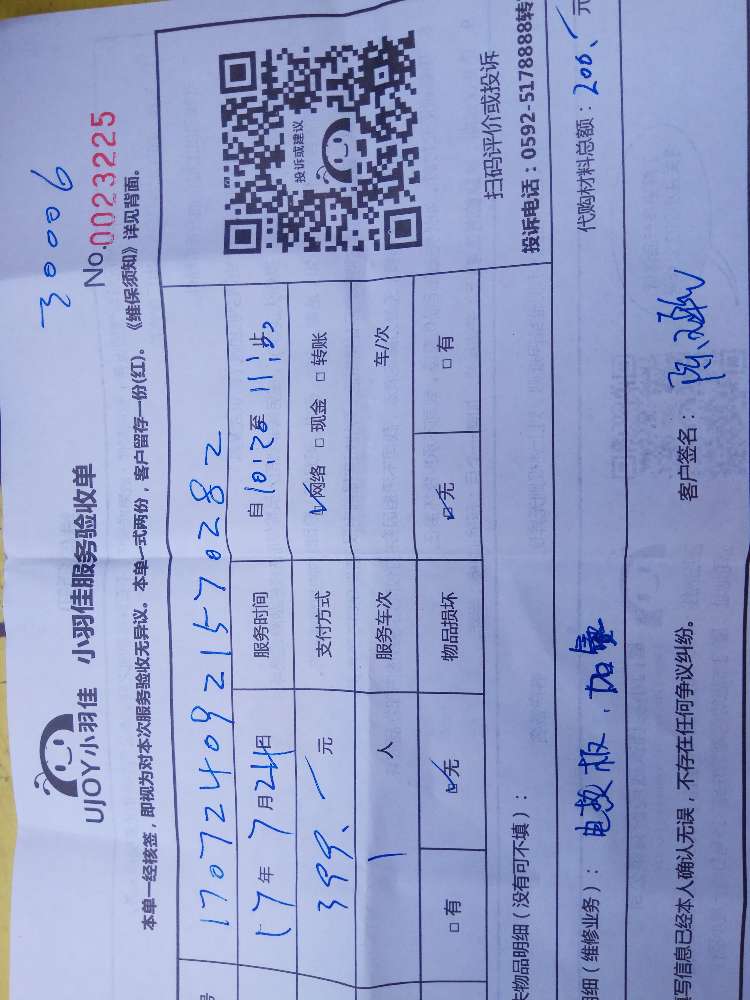 30006
UJOY小羽佳 小羽佳服务验收单
No.0023225
本单一经核签，即视为对本次服务验收无异议。本单一式两份，客户留存一份(红)。《维保须知》详见背面。
号 17072409215570282
17年7月24日 服务时间 自10:20至11:55止
399.元 支付方式 ☑网络 □现金 □转账
1 人 服务车次 车/次
□有 ☑无 物品损坏 ☑无 □有
投诉或建议
扫码评价或投诉
投诉电话：0592-5178888转
失物品明细（没有可不填）：
细（维修业务）：电教板，加 代购材料总额：200.元
写信息已经本人确认无误，不存在任何争议纠纷。 客户签名：陈